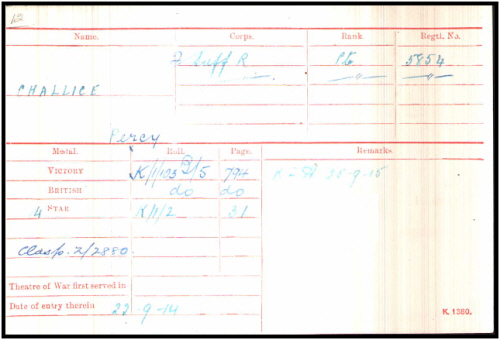 Name. Corps. Rank. Regtl. No.
2 Suff R Pte 5854
" " "
CHALLICE
Percy
Medal. Roll. Page. Remarks.
VICTORY K/1/103 B/5 794 K-in-A 25-9-15
BRITISH do do
4 STAR K/1/2 31
Clasp. Z/2880.
Theatre of War first served in
Date of entry therein 22-9-14
K. 1380.